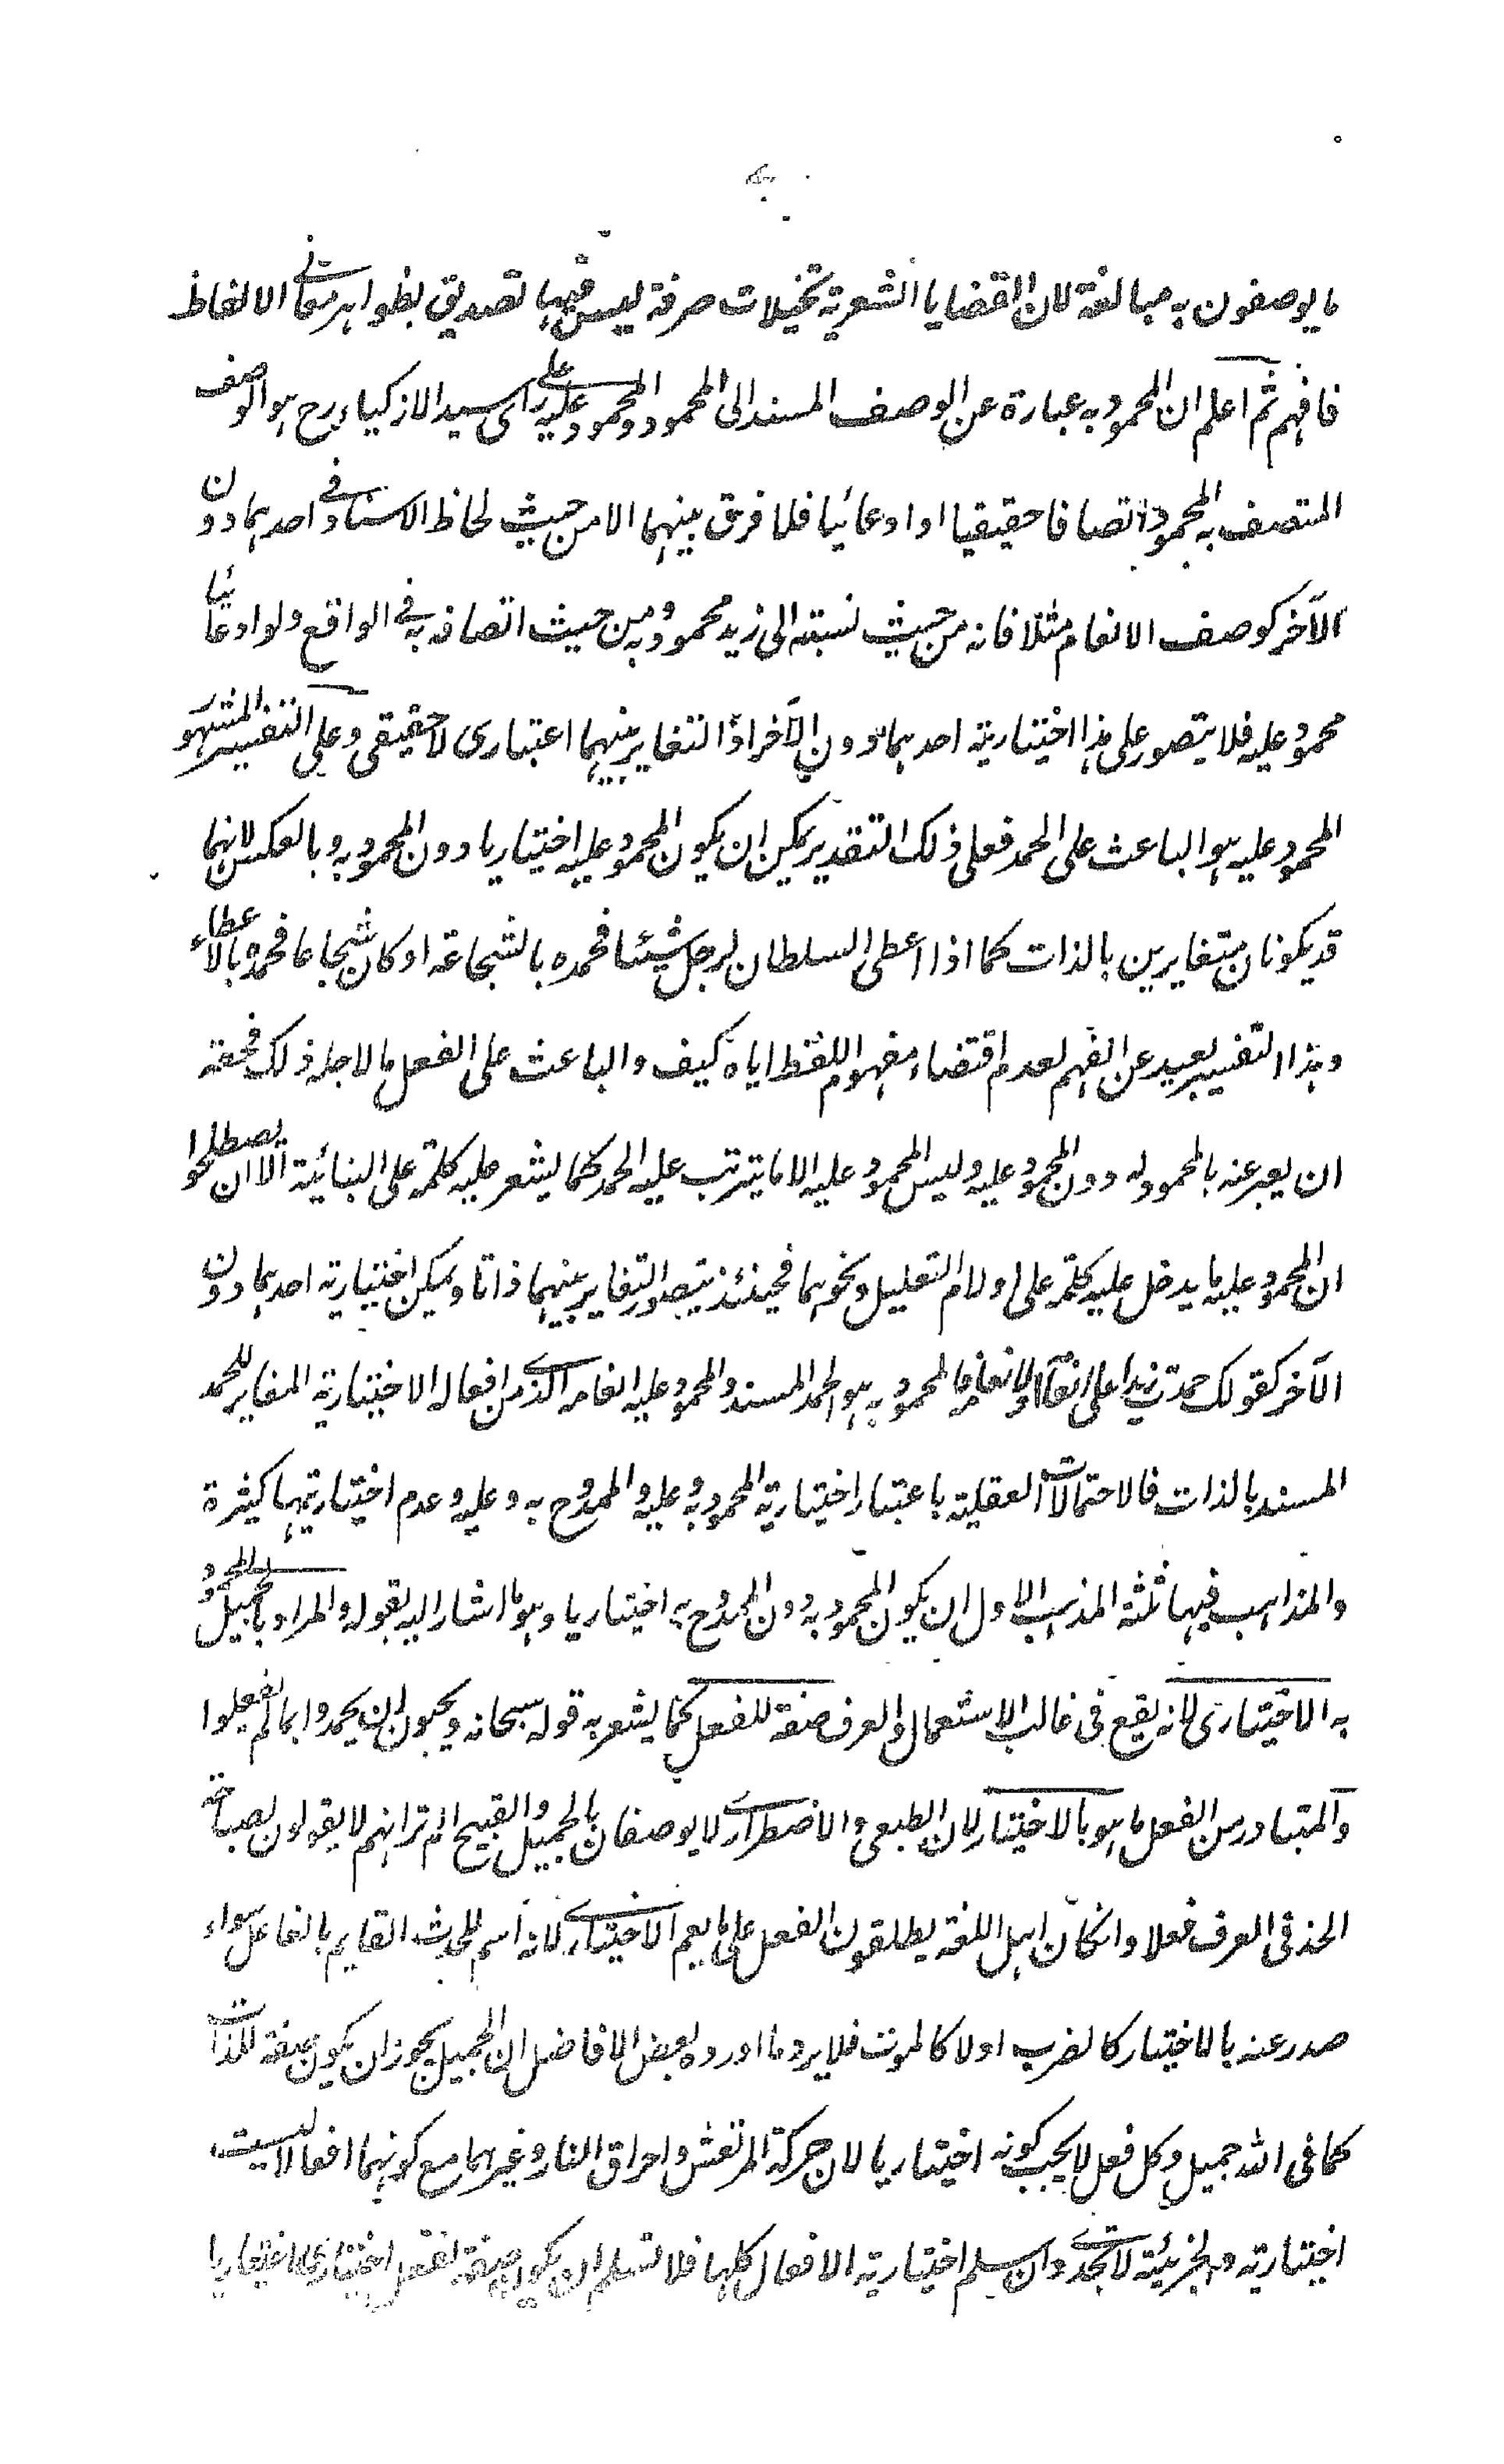 ما يوصفون به مبالغة لان القضايا الشعرية تخيلات صرفة ليس فيها تصديق بظواهر معانى الالفاظ
فافهم ثم اعلم ان المحمود به عبارة عن الوصف المسند الى المحمود والمحمود عليه على راى سيد الازكياء رح هو الوصف
المتصف به المحمود اتصافا حقيقيا او ادعائيا فلا فرق بينهما الا من حيث لحاظ الاسناد فى احدهما دون
الآخر كوصف الانعام مثلا فانه من حيث نسبته الى زيد محمود به ومن حيث اتصافه به فى الواقع ولو ادعائيا
محمود عليه فلا يتصور على هذا اختيارية احدهما دون الآخر اذ التغاير بينهما اعتبارى لا حقيقى وعلى التفسير المشهور
المحمود عليه هو الباعث على الحمد فعلى ذلك التقدير يمكن ان يكون المحمود عليه اختياريا دون المحمود به وبالعكس لانهما
قد يكونان متغايرين بالذات كما اذا اعطى السلطان لرجل شيئا فحمده بالشجاعة او كان شجاعا فحمده بالاعطاء
وهذا التفسير بعيد عن الفهم لعدم اقتضاء مفهوم اللفظ اياه كيف والباعث على الفعل ما لاجله ذلك فحقه
ان يعبر عنه بالمحمود له دون المحمود عليه وليس المحمود عليه الا ما يترتب عليه الحمد كما يشعر عليه كلمة على البنائية الا ان يصطلحوا
ان المحمود عليه ما يدخل عليه كلمة على او لام التعليل ونحوهما فحينئذ يتصور التغاير بينهما ذاتا ويمكن اختيارية احدهما دون
الآخر كقولك حمدت زيدا على انعامه او لانعامه فالمحمود به هو الحمد المسند والمحمود عليه انعامه الذى من افعاله الاختيارية المغاير للحمد
المسند بالذات فالاحتمالات العقلية باعتبار اختيارية المحمود به وعليه والممدوح به وعليه وعدم اختياريتهما كثيرة
والمذاهب فيها ثلثة المذهب الاول ان يكون المحمود به دون الممدوح به اختياريا وهو ما اشار اليه بقوله والمراد بالجميل المحمود
به الاختيارى لانه يقع فى غالب الاستعمال والعرف صفة للفعل كما يشعر به قوله سبحانه ويحبون ان يحمدوا بما لم يفعلوا
والمتبادر من الفعل ما هو بالاختيار لان الطبعى والاضطرارى لا يوصفان بالجميل والقبيح الم تر انهم لا يقولون لصباحة
الخد فى العرف فعلا وانكان اهل اللغة يطلقون الفعل على ما يعم الاختيارى لانه اسم للحدث القايم بالفاعل سواء
صدر عنه بالاختيار كالضرب او لا كالموت فلا يرد ما اورده بعض الافاضل ان الجميل يجوز ان يكون صفة للذات
كما فى الله جميل وكل فعل لا يجب كونه اختياريا لان حركة المرتعش واحراق النار وغيرهما مع كونهما افعالا ليست
اختيارية والجزئية لا تجدى وان سلم اختيارية الافعال كلها فلا نسلم ان يكون صفة لفعل اختيارى اختياريا